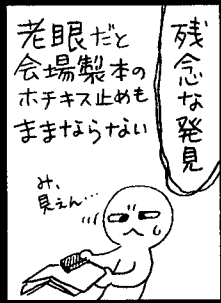 残念な発見
老眼だと
会場製本の
ホチキス止めも
ままならない
み、
見えん…